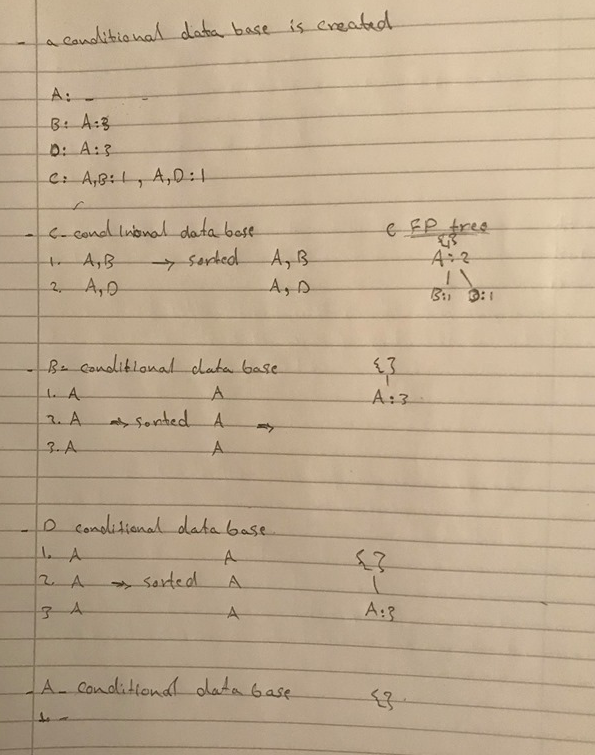 - a conditional data base is created
A: -  -
B: A:3
D: A:3
C: A,B:1 , A,D:1
- C- conditional data base
1. A,B → sorted A,B
2. A,D A,D
C FP tree
{}
A:2
B:1 D:1
- B- conditional data base
1. A A
2. A → sorted A →
3. A A
{}
A:3
- D conditional data base
1. A A
2. A → sorted A
3 A A
{}
A:3
- A- conditional data base {}
1. -